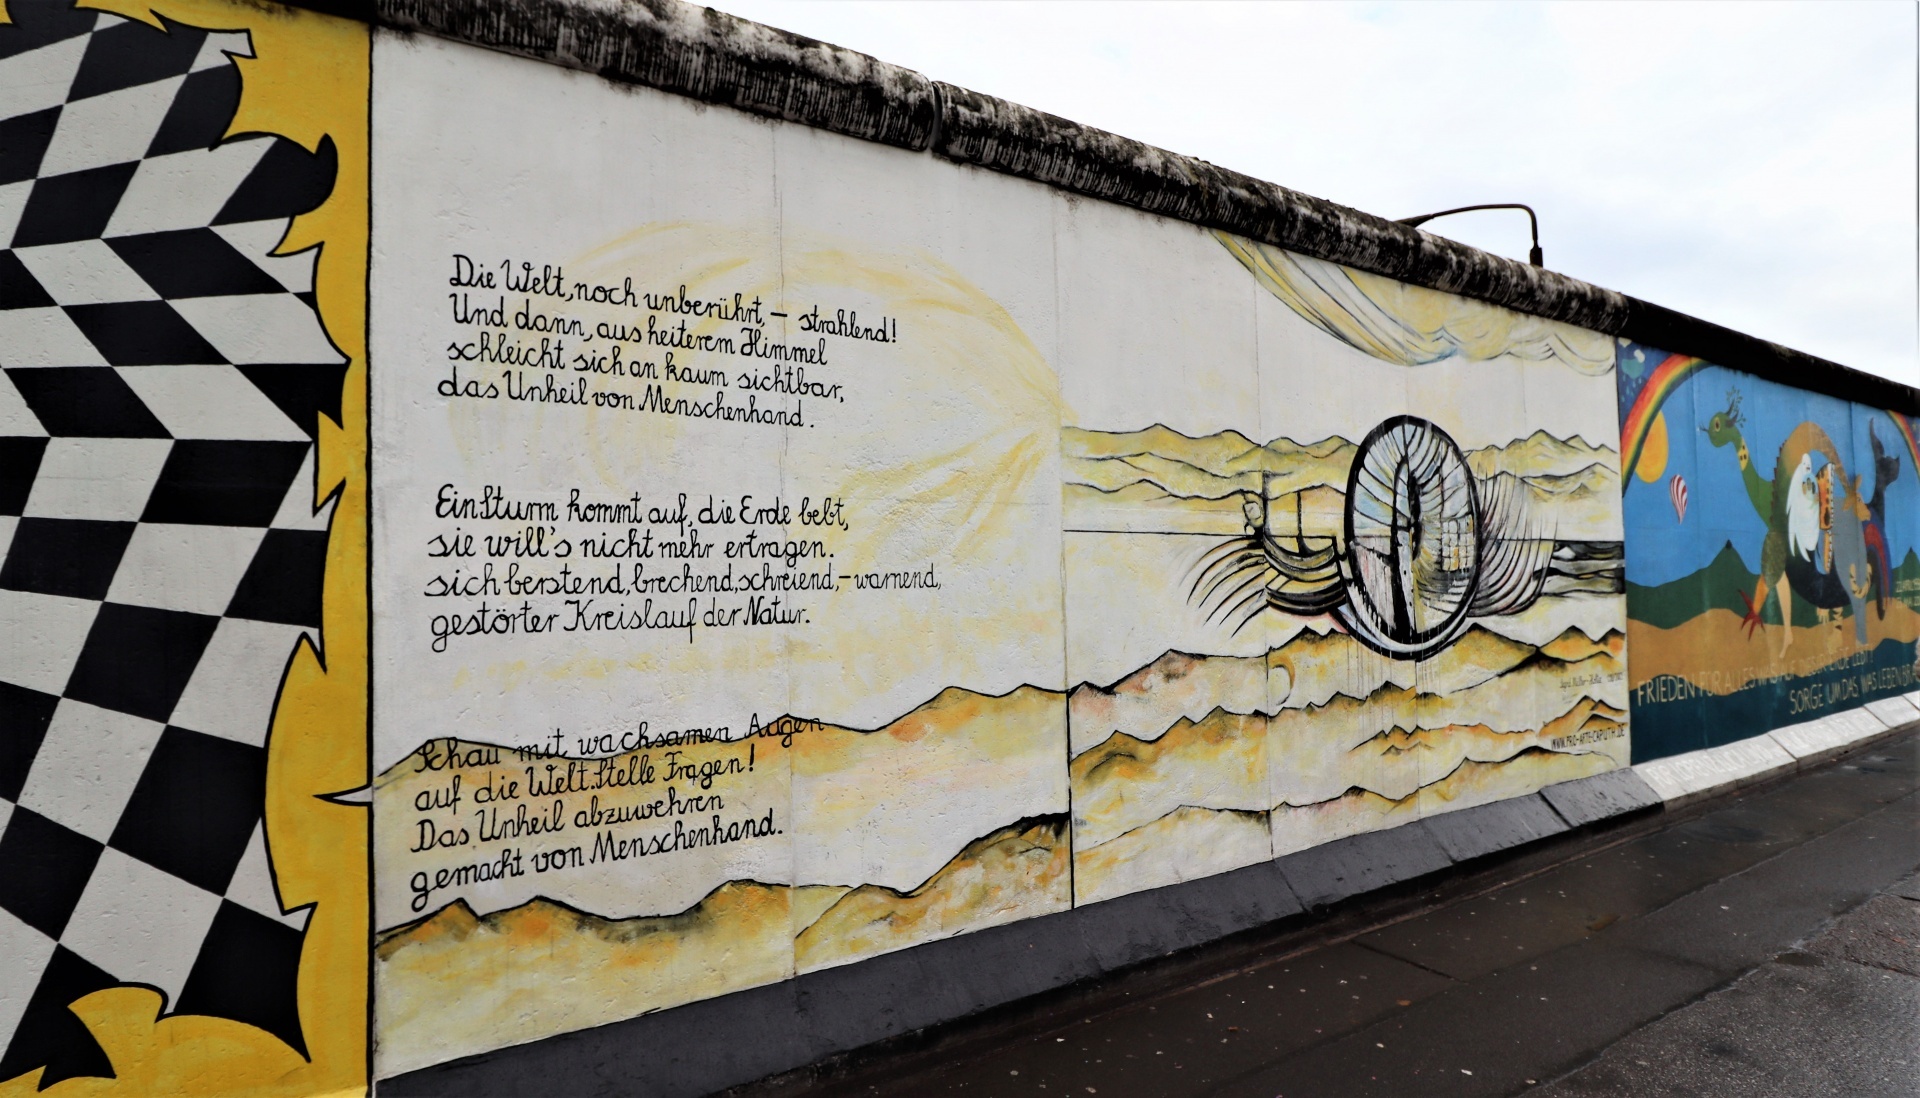 Die Welt, noch unberührt, – strahlend!
Und dann, aus heiterem Himmel
schleicht sich an kaum sichtbar,
das Unheil von Menschenhand.
Ein Sturm kommt auf, die Erde bebt,
sie will's nicht mehr ertragen.
sich berstend, brechend, schreiend, – warnend,
gestörter Kreislauf der Natur.
Schau mit wachsamen Augen
auf die Welt. Stelle Fragen!
Das Unheil abzuwehren
gemacht von Menschenhand.
WWW.PRO-ARTE-CAPUTH.DE
FRIEDEN FÜR ALLES WAS AUF DIESER ERDE LEBT!
SORGE UM DAS WAS LEBEN